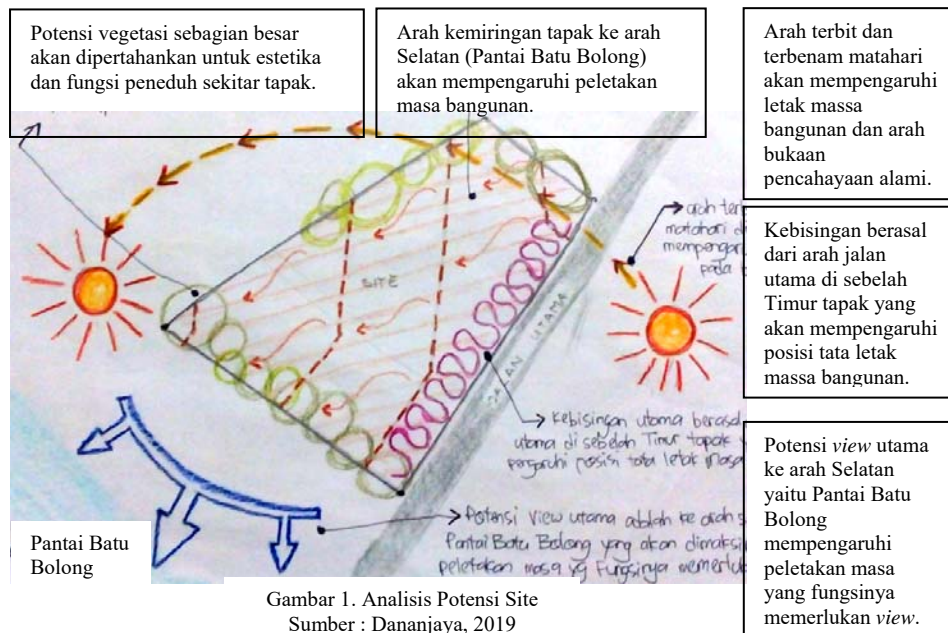 Potensi vegetasi sebagian besar
akan dipertahankan untuk estetika
dan fungsi peneduh sekitar tapak.
Arah kemiringan tapak ke arah
Selatan (Pantai Batu Bolong)
akan mempengaruhi peletakan
masa bangunan.
Arah terbit dan
terbenam matahari
akan mempengaruhi
letak massa
bangunan dan arah
bukaan
pencahayaan alami.
Kebisingan berasal
dari arah jalan
utama di sebelah
Timur tapak yang
akan mempengaruhi
posisi tata letak
massa bangunan.
Potensi view utama
ke arah Selatan
yaitu Pantai Batu
Bolong
mempengaruhi
peletakan masa
yang fungsinya
memerlukan view.
SITE
JALAN UTAMA
arah ter
matahari d
mempengar
pada
Kebisingan utama berasal
utama di sebelah Timur tapak
pengaruhi posisi tata letak masa
Potensi view utama adalah ke arah s
Pantai Batu Bolong yang akan dimaksi
peletakan masa yg fungsinya memerluk
Pantai Batu
Bolong
Gambar 1. Analisis Potensi Site
Sumber : Dananjaya, 2019